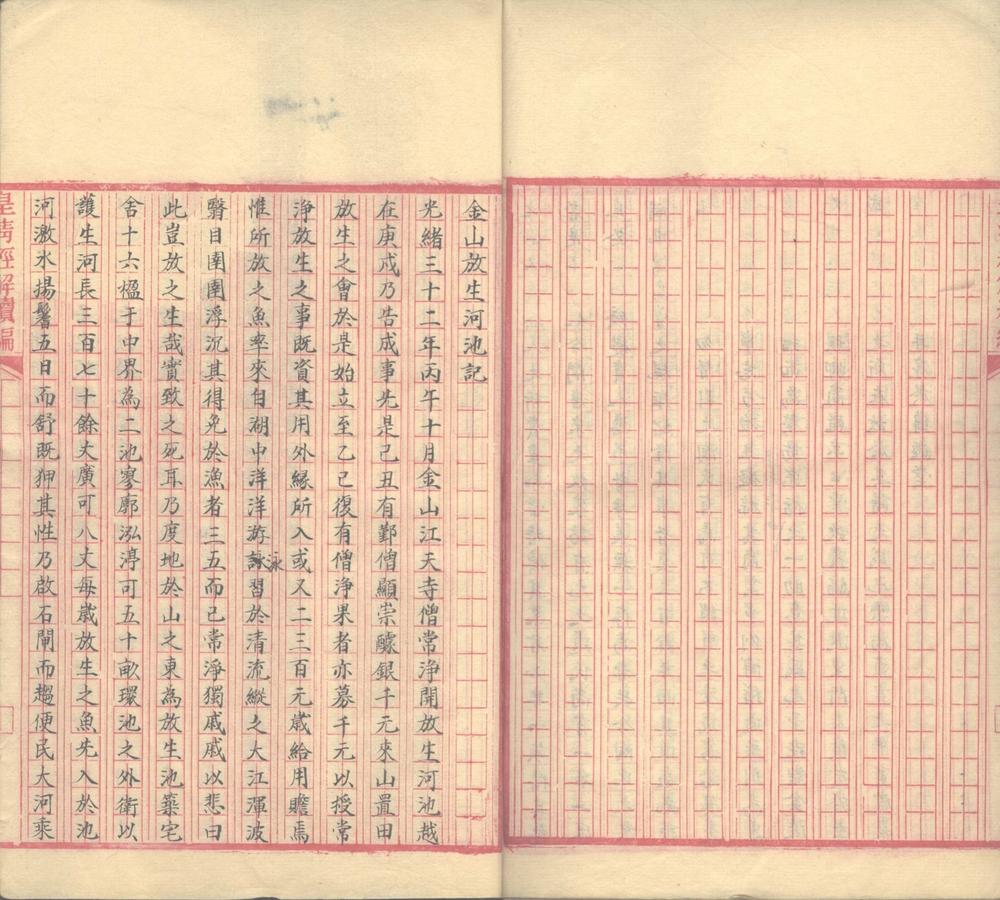 金山放生河池記
光緒三十二年丙午十月金山江天寺僧常浄開放生河池越
在庚戌乃告成事先是己丑有鄞僧顯崇醵銀千元來山置田
放生之會於是始立至乙巳復有僧淨果者亦募千元以授常
浄放生之事既資其用外緣所入或又二三百元歲給用贍焉
惟所放之魚率來自湖中洋洋游詠泳習於清流縱之大江渾波
翳目圉圉浮沉其得免於漁者三五而已常淨獨戚戚以悲曰
此豈放之生哉實致之死耳乃度地於山之東為放生池築宅
舍十六楹于中界為二池寥廓泓渟可五十畝環池之外衛以
護生河長三百七十餘丈廣可八丈每歲放生之魚先入於池
河激水揚鬐五日而舒既狎其性乃啟石閘而趨便民大河乘
皇清經解續編